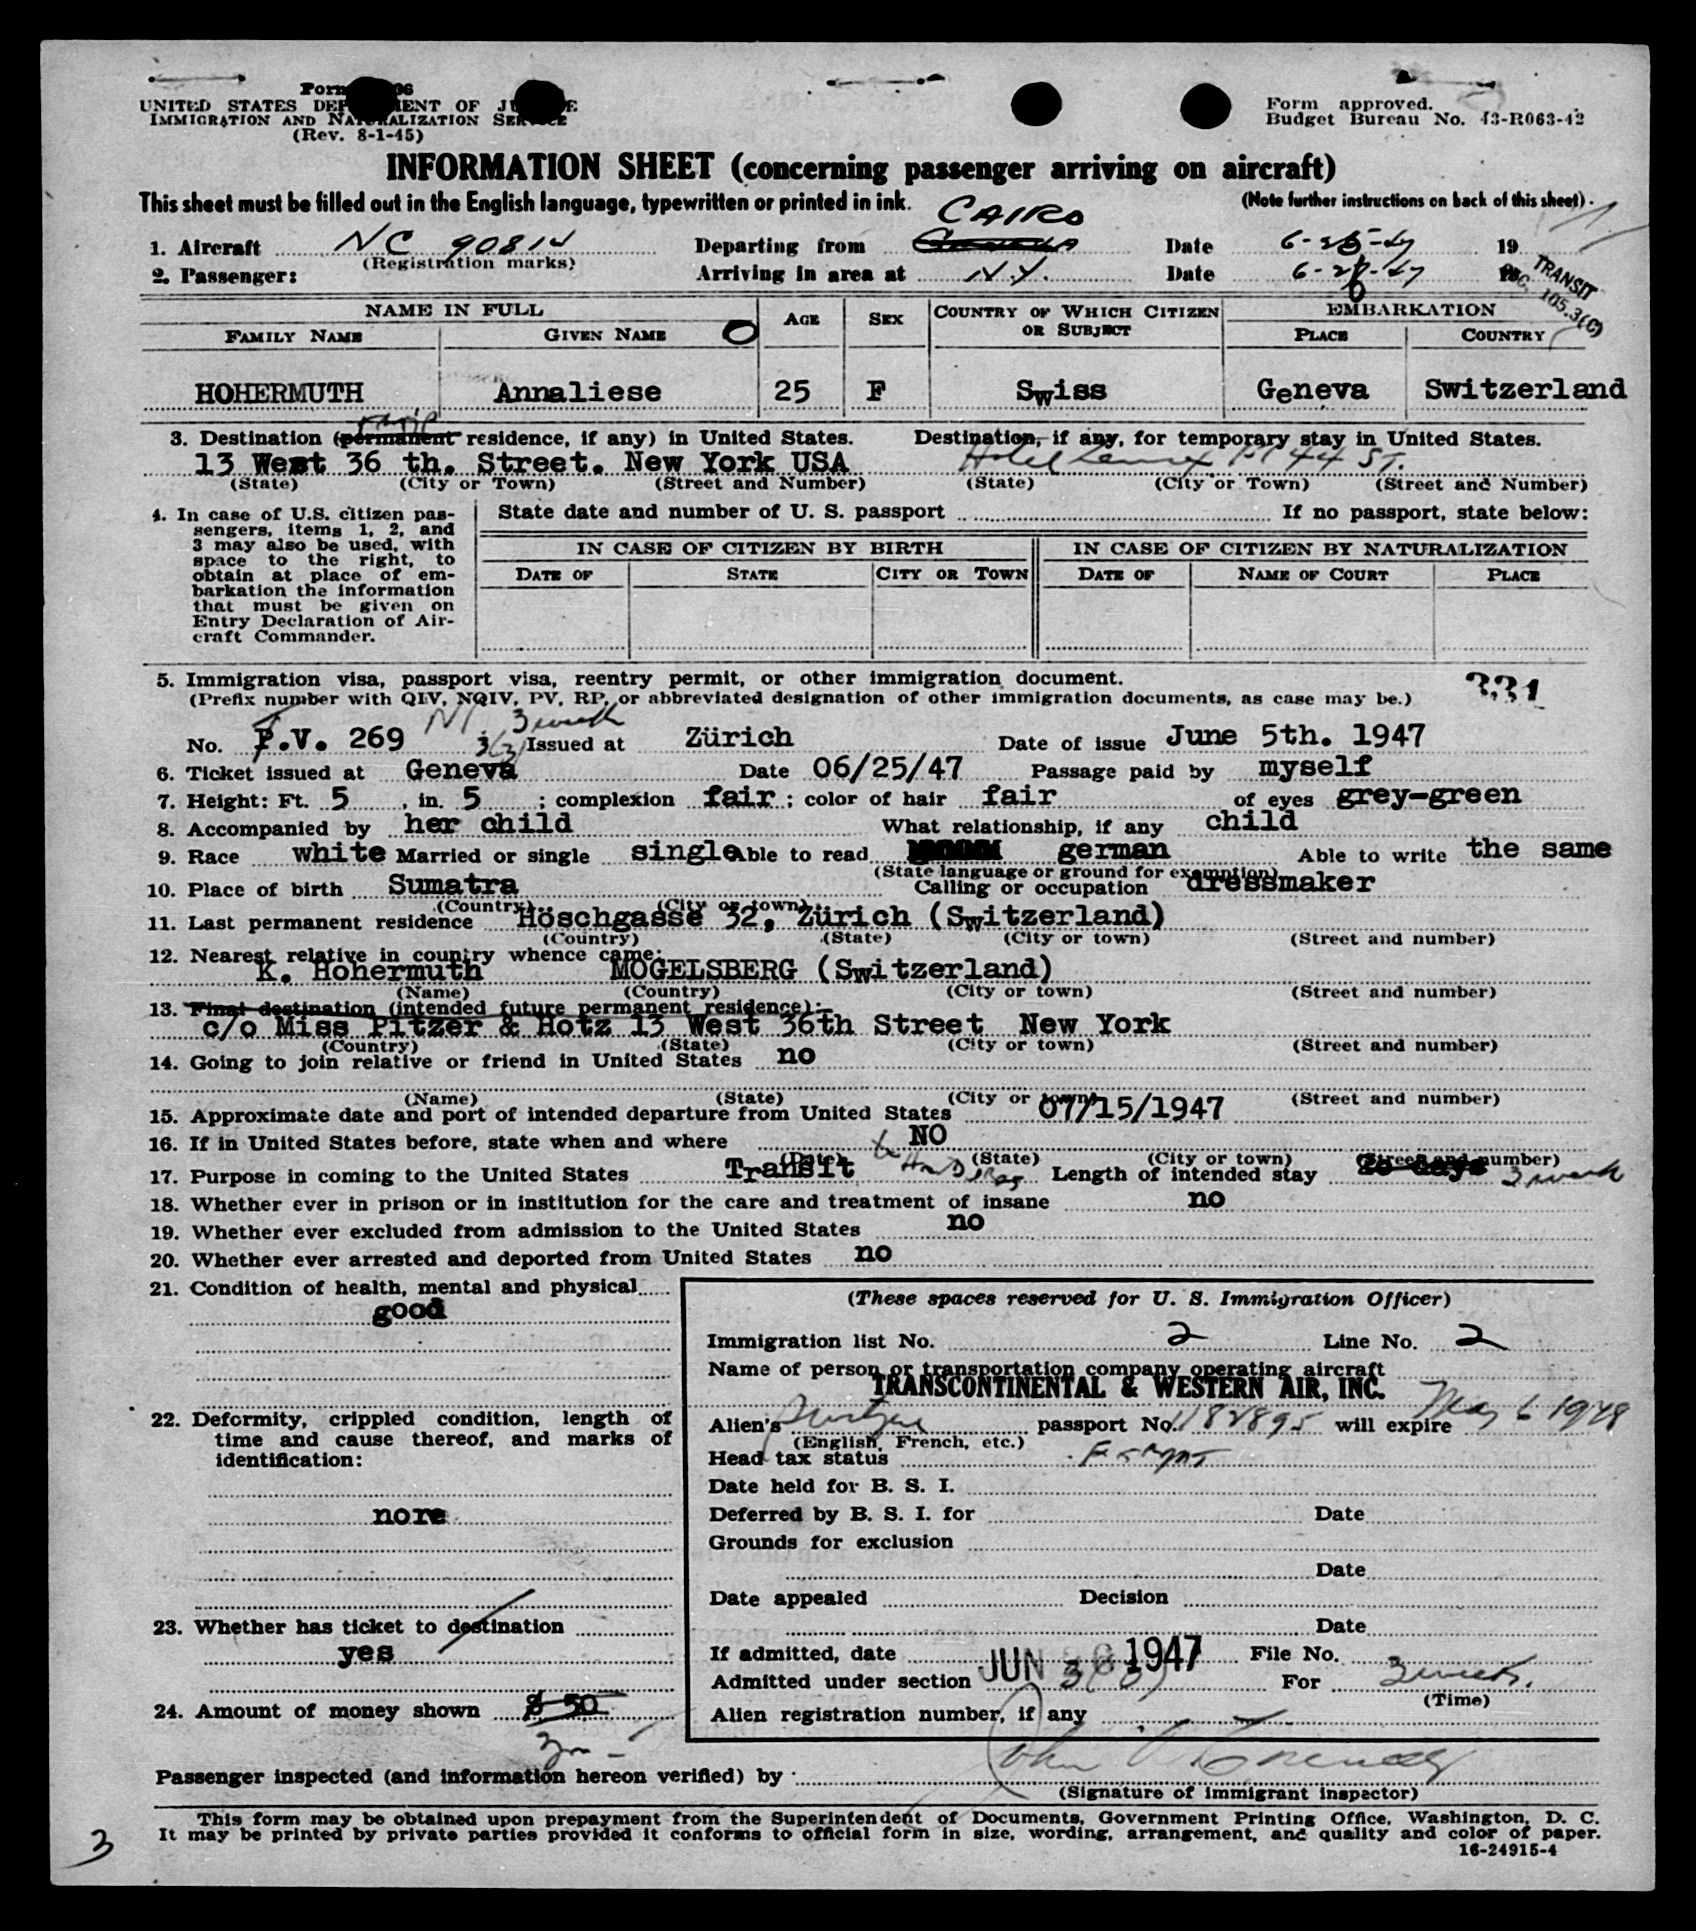 UNITED STATES DEPARTMENT OF JUSTICE
IMMIGRATION AND NATURALIZATION SERVICE
(Rev. 8-1-45)
Form approved.
Budget Bureau No. 43-R063-42
INFORMATION SHEET (concerning passenger arriving on aircraft)
This sheet must be filled out in the English language, typewritten or printed in ink. (Note further instructions on back of this sheet)
CAIRO
1. Aircraft NC 90814 Departing from Geneva Date 6-25-47 19
(Registration marks)
2. Passenger: Arriving in area at N.Y. Date 6-26-47
TRANSIT
SEC. 105.3(C)
NAME IN FULL AGE SEX COUNTRY OF WHICH CITIZEN OR SUBJECT EMBARKATION
FAMILY NAME GIVEN NAME PLACE COUNTRY
HOHERMUTH Annaliese 25 F Swiss Geneva Switzerland
3. Destination (permanent residence, if any) in United States. Destination, if any, for temporary stay in United States.
13 West 36 th. Street. New York USA Hotel 44 ST.
(State) (City or Town) (Street and Number) (State) (City or Town) (Street and Number)
4. In case of U.S. citizen pas-
sengers, items 1, 2, and
3 may also be used, with
space to the right, to
obtain at place of em-
barkation the information
that must be given on
Entry Declaration of Air-
craft Commander.
State date and number of U. S. passport If no passport, state below:
IN CASE OF CITIZEN BY BIRTH IN CASE OF CITIZEN BY NATURALIZATION
DATE OF STATE CITY OR TOWN DATE OF NAME OF COURT PLACE
5. Immigration visa, passport visa, reentry permit, or other immigration document.
(Prefix number with QIV, NQIV, PV, RP, or abbreviated designation of other immigration documents, as case may be.)
331
3 week
No. P.V. 269 3(3) Issued at Zürich Date of issue June 5th. 1947
6. Ticket issued at Geneva Date 06/25/47 Passage paid by myself
7. Height: Ft. 5, in. 5; complexion fair; color of hair fair of eyes grey-green
8. Accompanied by her child What relationship, if any child
9. Race white Married or single single Able to read german Able to write the same
(State language or ground for exemption)
10. Place of birth Sumatra Calling or occupation dressmaker
(Country) (City or town)
11. Last permanent residence Höschgasse 32, Zürich (Switzerland)
(Country) (State) (City or town) (Street and number)
12. Nearest relative in country whence came:
K. Hohermuth MOGELSBERG (Switzerland)
(Name) (Country) (City or town) (Street and number)
13. Final destination (intended future permanent residence):
c/o Miss Pitzer & Hotz 13 West 36th Street New York
(Country) (State) (City or town) (Street and number)
14. Going to join relative or friend in United States no
(Name) (State) (City or town) (Street and number)
15. Approximate date and port of intended departure from United States 07/15/1947
16. If in United States before, state when and where NO
(Date) (State) (City or town) (Street and number)
17. Purpose in coming to the United States Transit to Honduras Length of intended stay 20 days 3 week
18. Whether ever in prison or in institution for the care and treatment of insane no
19. Whether ever excluded from admission to the United States no
20. Whether ever arrested and deported from United States no
21. Condition of health, mental and physical
good
22. Deformity, crippled condition, length of
time and cause thereof, and marks of
identification:
none
23. Whether has ticket to destination
yes
24. Amount of money shown $ 50
(These spaces reserved for U. S. Immigration Officer)
Immigration list No. 2 Line No. 2
Name of person or transportation company operating aircraft
TRANSCONTINENTAL & WESTERN AIR, INC.
Alien's passport No. 1182895 will expire May 6 1948
(English, French, etc.)
Head tax status Exempt
Date held for B. S. I.
Deferred by B. S. I. for Date
Grounds for exclusion
Date
Date appealed Decision
Date
If admitted, date JUN 26 1947 File No.
Admitted under section 3(3) For 3 weeks.
(Time)
Alien registration number, if any
Passenger inspected (and information hereon verified) by
(Signature of immigrant inspector)
This form may be obtained upon prepayment from the Superintendent of Documents, Government Printing Office, Washington, D. C.
It may be printed by private parties provided it conforms to official form in size, wording, arrangement, and quality and color of paper.
16-24915-4
3